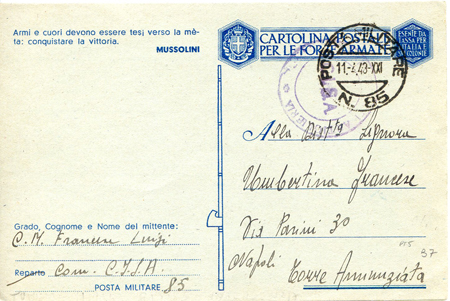 Armi e cuori devono essere tesi verso la mè-
ta: conquistare la vittoria.
MUSSOLINI
CARTOLINA POSTALE
PER LE FORZE ARMATE
ESENTE DA
TASSA PER
L'ITALIA E
COLONIE
POSTA MILITARE
11.4.43.XXI
N. 85
Alla Dist/ta Signora
Umbertina Francese
Via Parini 30
Napoli Torre Annunziata
37
Grado, Cognome e Nome del mittente:
C. M. Francese Luigi
Reparto Com.
POSTA MILITARE 85